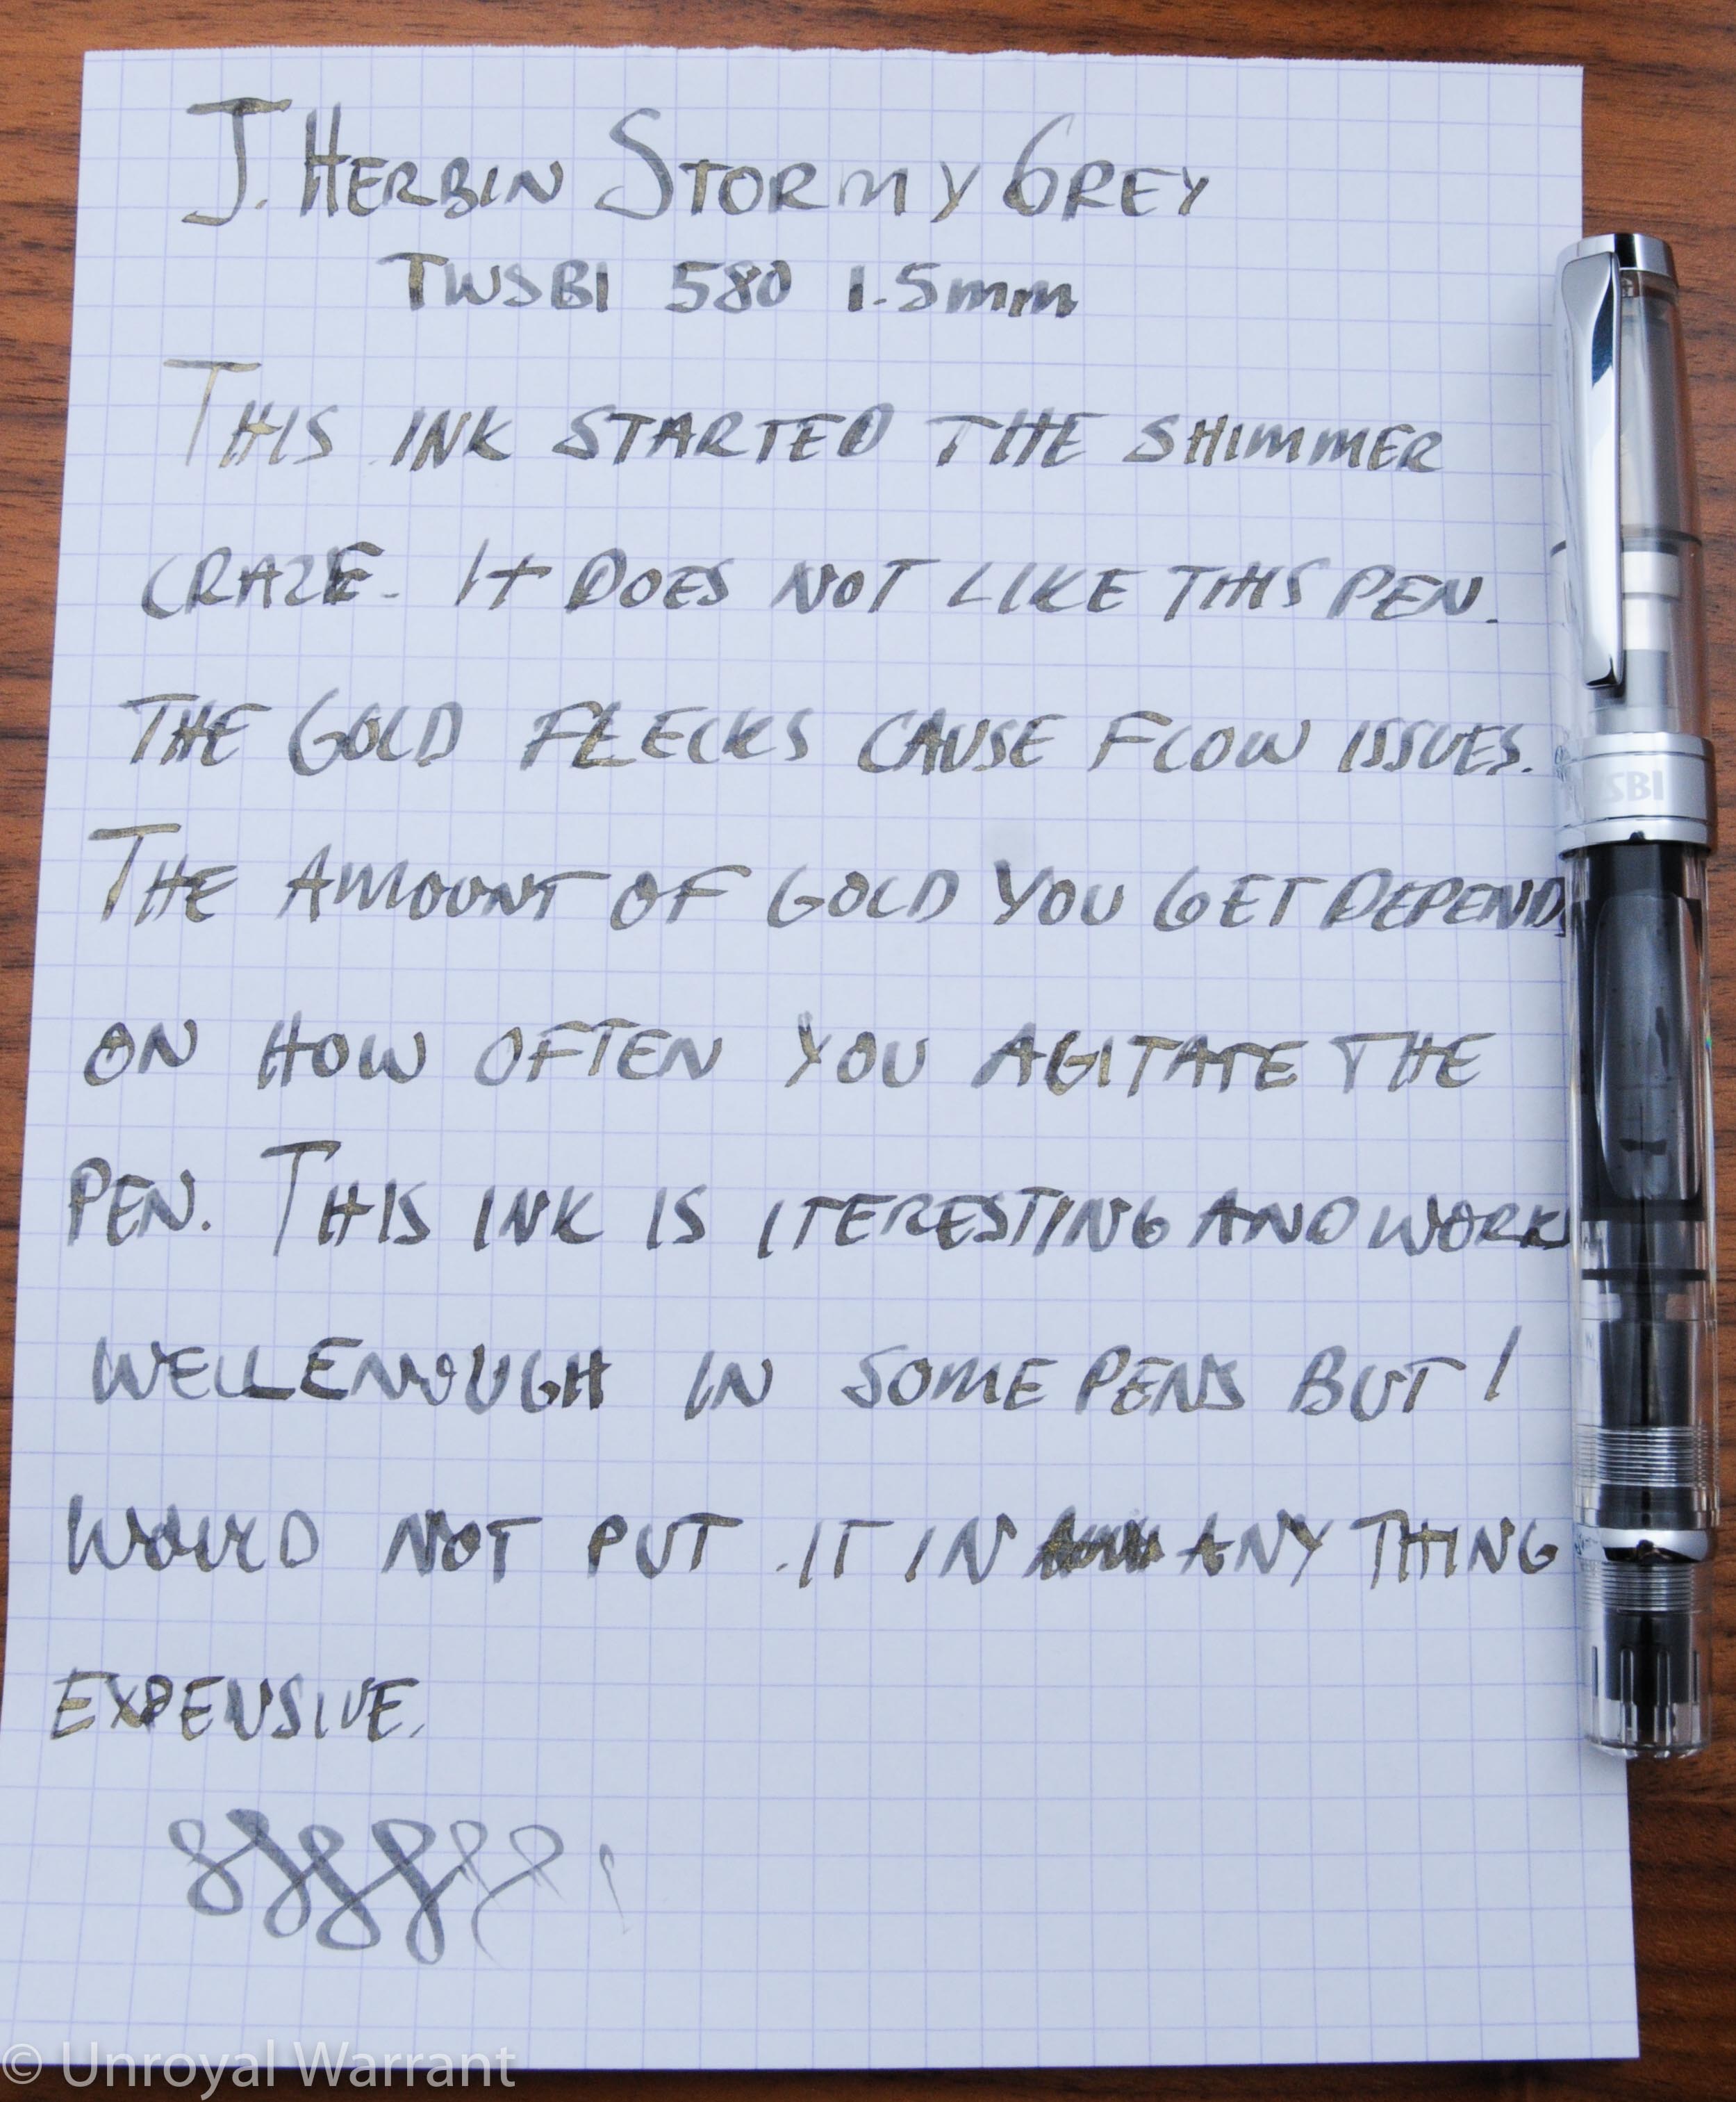 J. HERBIN STORMY GREY
TWSBI 580 1.5mm
THIS INK STARTED THE SHIMMER
CRAZE. IT DOES NOT LIKE THIS PEN.
THE GOLD FLECKS CAUSE FLOW ISSUES.
SBI
THE AMOUNT OF GOLD YOU GET DEPEND
ON HOW OFTEN YOU AGITATE THE
PEN. THIS INK IS ITERESTING AND WORKS
WELL ENOUGH IN SOME PENS BUT I
WOULD NOT PUT IT IN ANY THING
EXPENSIVE.
© Unroyal Warrant